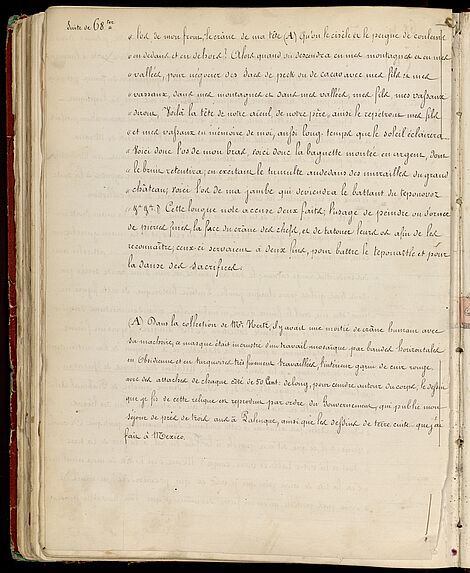 Suite de 68 ter a
« l'os de mon front, le crâne de ma tête (A) Qu'on le cisèle et le peigne de couleurs
« en dedans et en dehors! Alors quand on descendra en mes montagnes et en mes
« vallées, pour négocier des sacs de peck ou de cacao avec mes fils et mes
« vassaux, dans mes montagnes et dans mes vallées, mes fils, mes vassaux
« diront Voilà la tête de notre aïeul, de notre père, ainsi le répèteront mes fils
« et mes vassaux en mémoire de moi, aussi long temps que le soleil éclairera
« Voici donc l'os de mon bras, voici donc la baguette montée en argent, dont
« le bruit retentira, en excitant le tumulte au dedans des murailles du grand
« château; voici l'os de ma jambe qui deviendra le battant du teponovoz
« &a &a.)) Cette longue note accuse deux faits, l'usage de peindre ou d'orner
de pierres fines, la face du crâne des chefs, et de tatouer leurs os afin de les
reconnaître; ceux-ci servaient à deux fins, pour battre le tepomaztle et pour
la danse des sacrifices.
(A) Dans la collection de Mr. Hertz, il y avait une moitié de crâne humain avec
sa machoire, ce masque était incrusté d'un travail mosaïque par bandes horizontales
en Obsidienne et en turquoises très finement travaillées, l'intérieur garni de cuir rouge,
avec des attaches de chaque côté de 50 Cent: de long, pour ceindre autour du corps, le dessin
que je fis de cette relique est reproduit par ordre du Gouvernement, qui publie mon
séjour de près de trois ans à Palenque, ainsi que les dessins de terre cuite que j'ai
fait à Mexico.